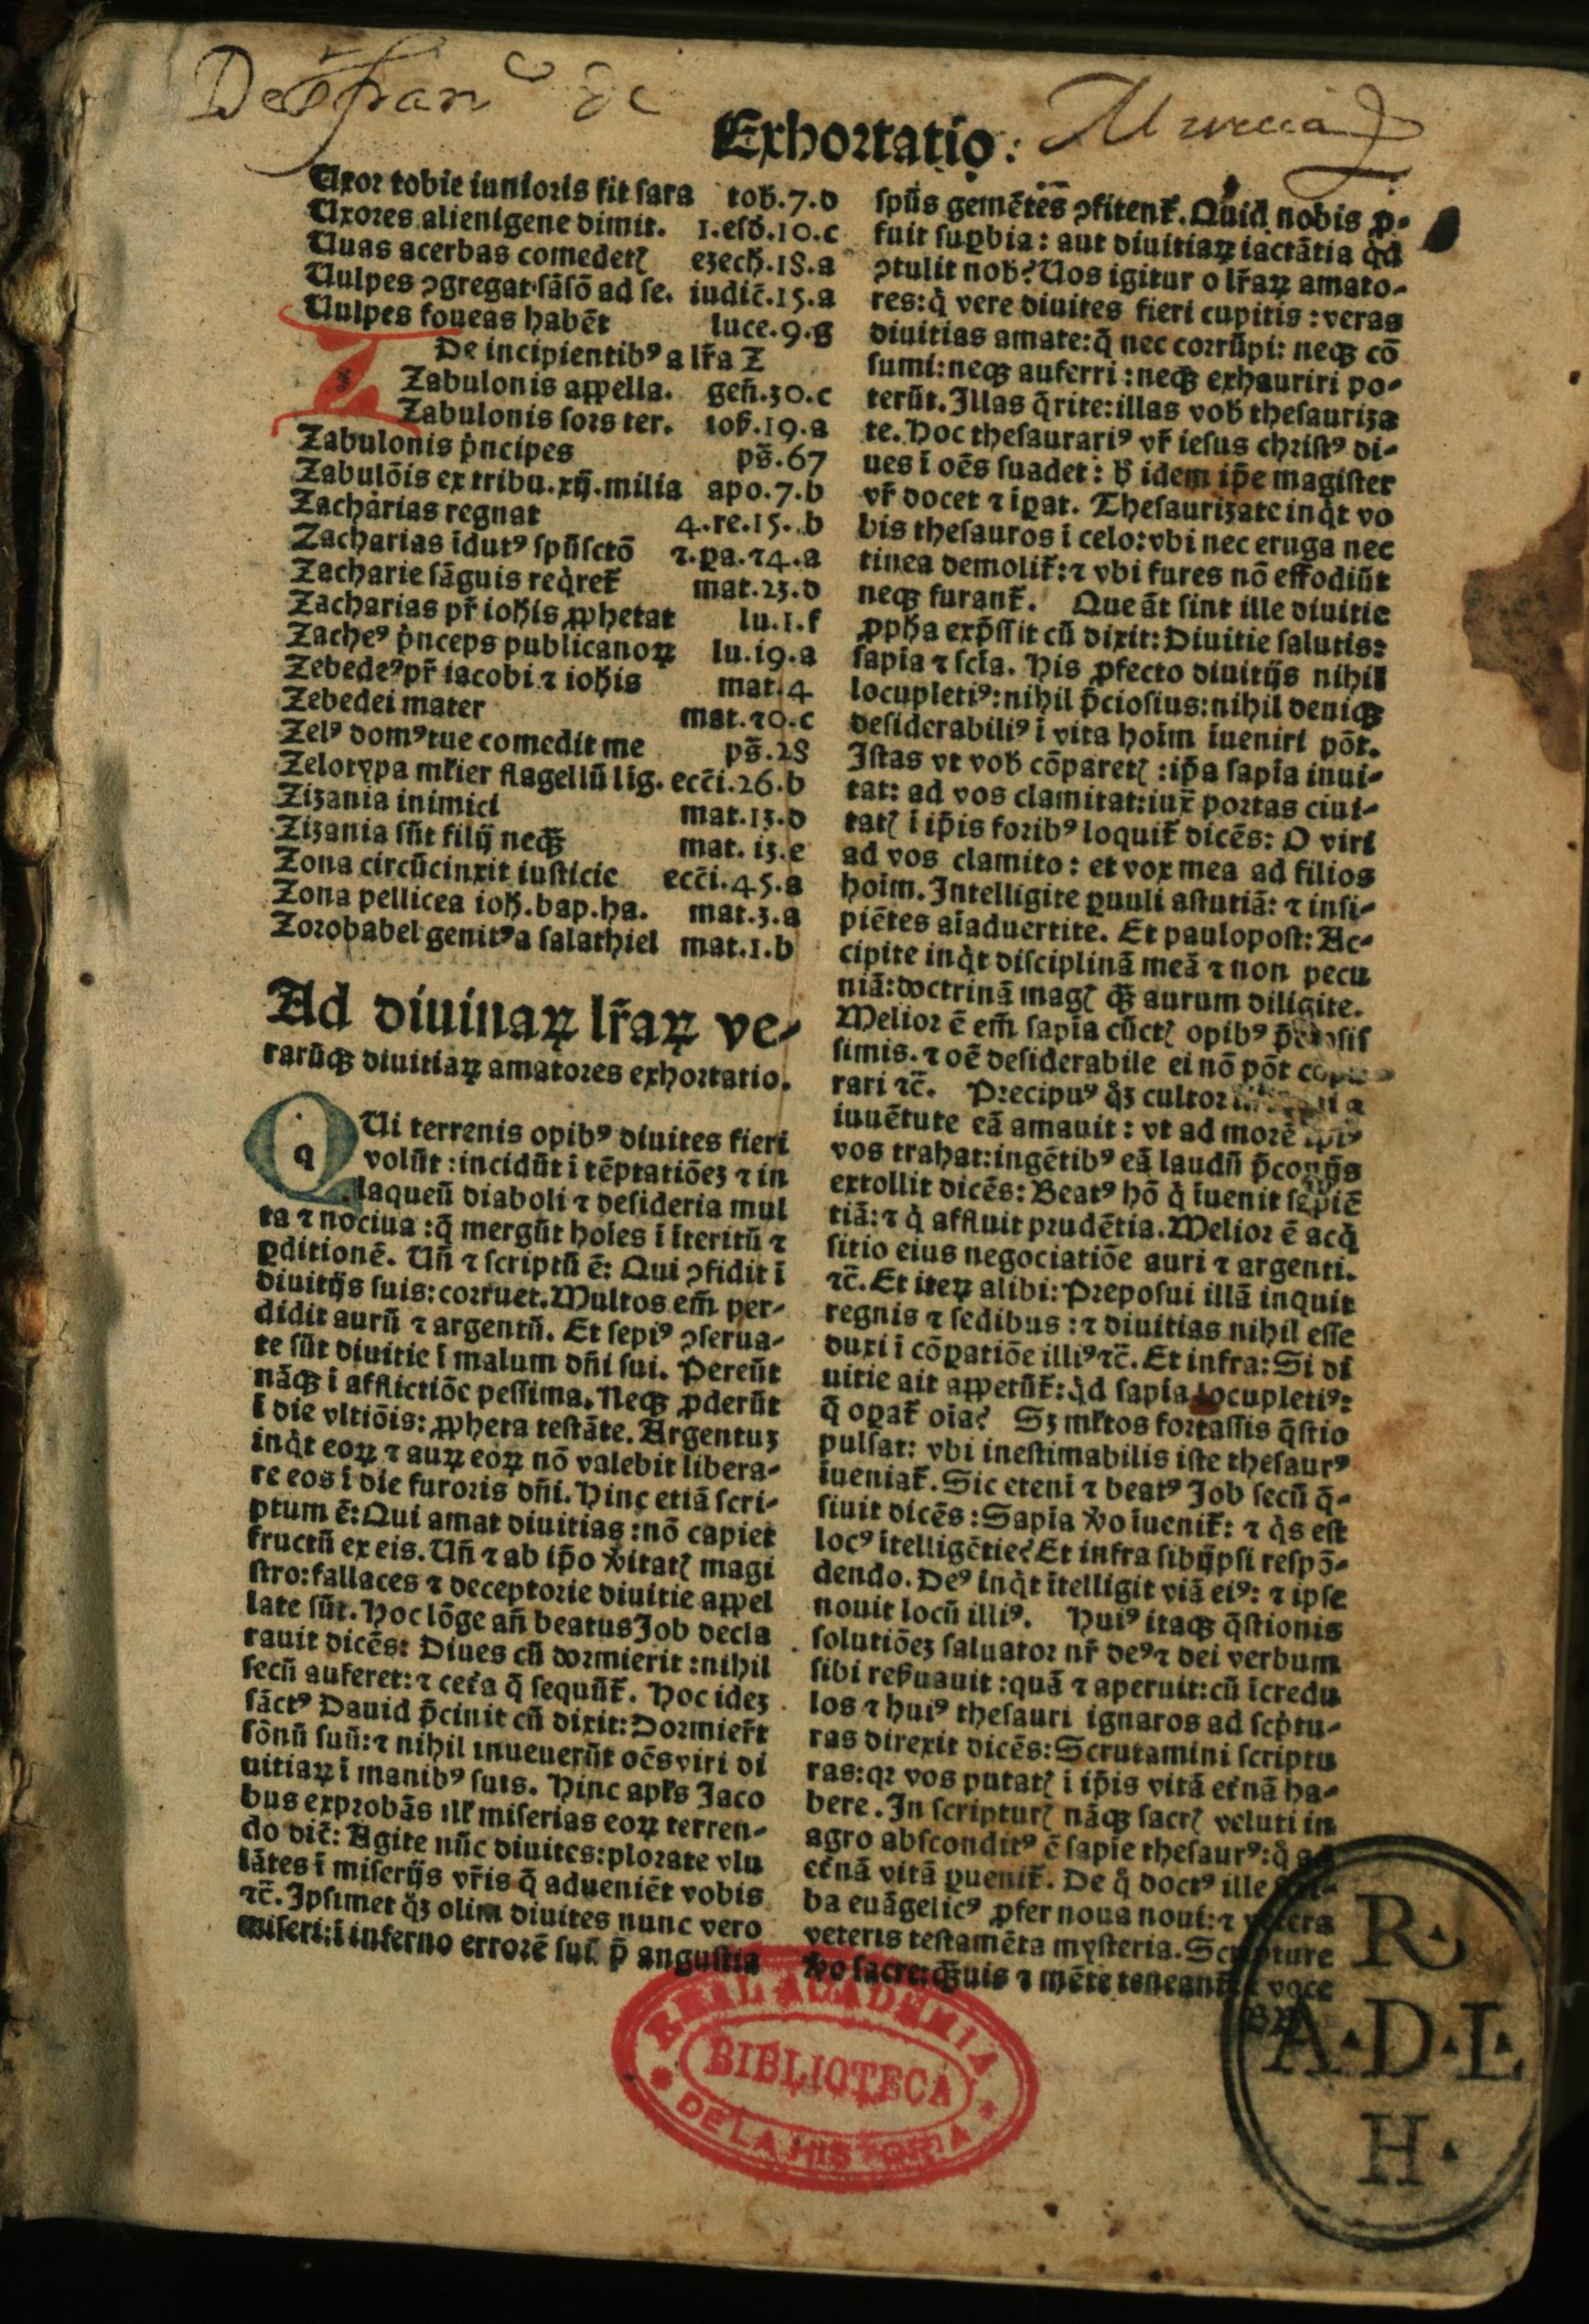 De fran^co de Murcia
Exhortatio.
Uxor tobie iunioris fit sara tob̃.7.d
Uxores alienigene dimit. 1.esd̃.10.c
Uuas acerbas comedetꝭ ezecħ.18.a
Uulpes ꝯgregat sãsõ ad se. iudic̃.15.a
Uulpes foueas habēt luce.9.g
De incipientibꝰ a lr̃a Z
Z
Zabulonis appella. geñ.30.c
Zabulonis sors ter. ios̃.19.a
Zabulonis p̃ncipes ps̃.67
Zabulõis ex tribu.xij.milia apo.7.b
Zacharias regnat 4.re.15.b
Zacharias idutꝰ sp̃usctõ 2.pa.24.a
Zacharie sãguis reqͥret̃ mat.23.d
Zacharias pr̃ ioħis ꝓphetat lu.1.f
Zacheꝰ pͥnceps publicanoꝝ lu.19.a
Zebedeꝰ pr̃ iacobi ⁊ ioħis mat.4
Zebedei mater mat.20.c
Zelꝰ domꝰ tue comedit me ps̃.28
Zelotypa ml̃ier flagellũ lig. ecc̃i.26.b
Zizania inimici mat.13.d
Zizania sũt filij neqꝫ mat.13.e
Zona circũcinxit iusticie ecc̃i.45.a
Zona pellicea ioħ.bap.ha. mat.3.a
Zorobabel genitꝰ a salathiel mat.1.b
Ad diuinaꝝ lr̃aꝝ ve-
rarũqꝫ diuitiaꝝ amatores exhortatio.
QUi terrenis opibꝰ diuites fieri
volũt :incidũt i tẽptatiõeꝫ ⁊ in
laqueũ diaboli ⁊ desideria mul
ta ⁊ nociua :q̃ mergũt hoĩes i ĩteritũ ⁊
ꝑditionẽ. Uñ ⁊ scriptũ ẽ: Qui ꝯfidit ĩ
diuitijs suis:corruet. Multos em̃ per-
didit aurũ ⁊ argentũ. Et sepiꝰ ꝯserua-
te sũt diuitie ĩ malum dñi sui. Pereũt
nãqꝫ i afflictiõe pessima. Neqꝫ ꝓderũt
ĩ die vltiõis: ꝓpheta testãte. Argentuꝫ
inqͥt eoꝝ ⁊ auꝝ eoꝝ nõ valebit libera-
re eos ĩ die furoris dñi. Hinc etiã scri-
ptum ẽ: Qui amat diuitias :nõ capiet
fructũ ex eis. Uñ ⁊ ab ip̃o v̾itatꝭ magi
stro: fallaces ⁊ deceptorie diuitie appel
late sũt. Hoc lõge añ beatus Job decla
rauit dicẽs: Diues cũ dormierit :nihil
secũ auferet: ⁊ cet̃a q̃ sequũt̃. Hoc ideꝫ
sãctꝰ Dauid p̃cinit cũ dixit: Dormier̃t
sõnũ suũ: ⁊ nihil inuenerũt oẽs viri di
uitiaꝝ ĩ manibꝰ suis. Hinc apl̃s Jaco
bus exprobãs ill̃ miserias eoꝝ terren-
do dic̃: Agite nũc diuites:plorate vlu
lãtes ĩ miserijs vr̃is q̃ adueniẽt vobis
⁊c̃. Ipsimet qͦꝫ olim diuites nunc vero
miseri:ĩ inferno errorẽ suũ p̃ angustia
sp̃us gemẽtes ꝯfitent̃. Quid nobis ꝓ-
fuit suꝑbia: aut diuitiaꝝ iactãtia qͥd
ꝯtulit nob̃? Uos igitur o lr̃aꝝ amato-
res:qͥ vere diuites fieri cupitis :veras
diuitias amate: q̃ nec corrũpi: neqꝫ cõ
sumi:neqꝫ auferri :neqꝫ exhauriri po-
terũt. Illas q̃rite:illas vob̃ thesauriza
te. Hoc thesaurariꝰ vr̃ iesus christꝰ di-
ues ĩ oẽs suadet: ħ idem ip̃e magister
vr̃ docet ⁊ iꝑat. Thesaurizate inqͥt vo
bis thesauros ĩ celo:vbi nec eruga nec
tinea demolit̃: ⁊ vbi fures nõ effodiũt
neqꝫ furant̃. Que ãt sint ille diuitie
ꝓpħa exp̃ssit cũ dixit: Diuitie salutis:
sapĩa ⁊ scĩa. His ꝓfecto diuitijs nihil
locupletiꝰ:nihil p̃ciosius:nihil deniqꝫ
desiderabiliꝰ ĩ vita hoĩm ĩueniri põt.
Istas vt vob̃ cõparetꝭ :ip̃a sapĩa inui-
tat: ad vos clamitat:iux̃ portas ciui-
tatꝭ ĩ ip̃is foribꝰ loquit̃ dicẽs: O viri
ad vos clamito: et vox mea ad filios
hoĩm. Intelligite ꝑuuli astutiã: ⁊ insi-
piẽtes aĩaduertite. Et paulopost: Ac-
cipite inqͥt disciplinã meã ⁊ non pecu
niã:doctrinã magꝭ qꝫ aurum diligite.
Melior ẽ em̃ sapĩa cũctꝭ opibꝰ p̃ciosis
simis. ⁊ oẽ desiderabile ei nõ põt
rari ⁊c̃. Precipuꝰ qͦꝫ cultor
iuuẽtute eã amauit: vt ad morẽ ip̃iꝰ
vos trahat:ingẽtibꝰ eã laudũ p̃conijs
extollit dicẽs: Beatꝰ hõ qͥ ĩuenit sapiẽ
tiã: ⁊ qͥ affluit prudẽtia. Melior ẽ acqͥ
sitio eius negociatiõe auri ⁊ argenti.
⁊c̃. Et iteꝝ alibi: Preposui illã inquit
regnis ⁊ sedibus : ⁊ diuitias nihil esse
duxi ĩ cõꝑatiõe illiꝰ ⁊c̃. Et infra: Si di
uitie ait appetũt̃: qͥd sapĩa locupletiꝰ:
q̃ oꝑat̃ oĩa? Sꝫ ml̃tos fortassis q̃stio
pulsat: vbi inestimabilis iste thesaurꝰ
ĩueniat̃. Sic etenĩ ⁊ beatꝰ Job secũ q̃-
siuit dicẽs :Sapĩa v̾o ĩuenit̃: ⁊ qͥs est
locꝰ ĩtelligẽtie? Et infra sibijpsi respõ-
dendo. Deꝰ inqͥt ĩtelligit viã eiꝰ: ⁊ ipse
nouit locũ illiꝰ. Huiꝰ itaqꝫ q̃stionis
solutiõeꝫ saluator nr̃ deꝰ ⁊ dei verbum
sibi res̾uauit :quã ⁊ aperuit:cũ ĩcredu
los ⁊ huiꝰ thesauri ignaros ad scpͥtu-
ras direxit dicẽs: Scrutamini scriptu
ras:qꝛ vos putatꝭ ĩ ip̃is vitã et̃nã ha-
bere. In scripturꝭ nãqꝫ sacrꝭ veluti in
agro absconditꝰ ẽ sapĩe thesaurꝰ:qͥ ad
et̃nã vitã ꝑuenit̃. De qͦ doctꝰ ille scri-
ba euãgelicꝰ ꝓfer noua noui: ⁊ vetera
veteris testamẽta mysteria. Scripture
v̾o sacre:qꝫuis ⁊ mẽte teneant̃ ⁊ voce
REAL ACADEMIA
BIBLIOTECA
DE LA HISTORIA
R.
A.D.L.
H.